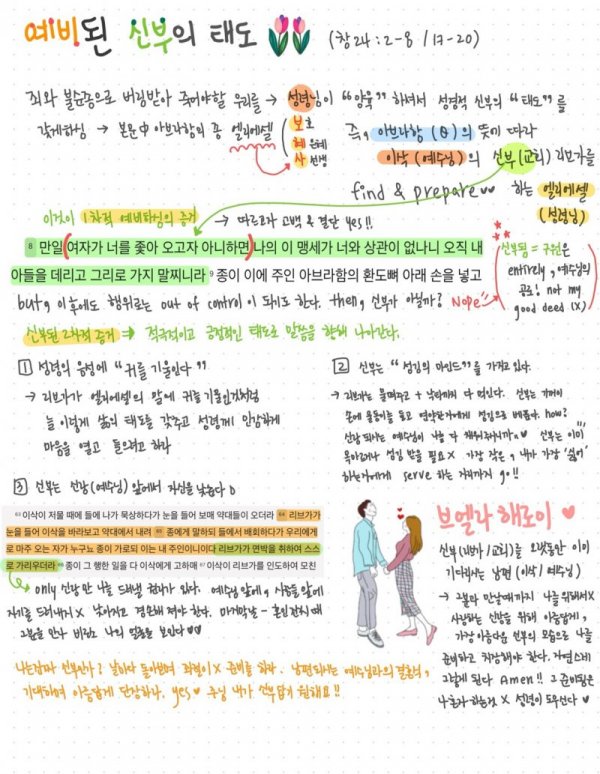 예비된 신부의 태도 (창24:2-8 / 17-20)
죄와 불순종으로 버림받아 죽어야할 우리를 → 성령님이 "양육" 하셔서 성경적 신부의 "태도"를
갖게하심 → 본문中 아브라함의 종 엘리에셀
보호
혜 은혜
사 선생
즉, 아브라함 (θ)의 뜻에 따라
이삭 (예수님)의 신부(교회) 리브가를
find & prepare 하는 엘리에셀
(성령님)
이것이 1차적 예비하심의 증거 → 따르고자 고백 & 결단 yes!!
8 만일 여자가 너를 좇아 오고자 아니하면 나의 이 맹세가 너와 상관이 없나니 오직 내
아들을 데리고 그리로 가지 말찌니라 9 종이 이에 주인 아브라함의 환도뼈 아래 손을 넣고
(신부됨 = 구원은
entirely, 예수님의
공로! not my
good deed (X)
but, 이후에도 행위로는 out of control 이 되기도 한다. then, 신부가 아닐까? Nope
신부된 2차적 증거 → 적극적이고 긍정적인 태도로 말씀을 향해 나아간다.
1 성령의 음성에 "귀를 기울인다"
→ 리브가가 엘리에셀의 말에 귀를 기울인것처럼
늘 이렇게 삶의 태도를 갖추고 성령께 민감하게
마음을 열고 들으려고 하라
2 신부는 "섬김의 마인드"를 가지고 있다.
→ 리브가는 물떠주고 + 낙타까지 다 먹인다. 신부는 기꺼이
손에 물동이를 들고 연약한자에게 섬김으로 베풀다. how?
신랑 되시는 예수님이 나를 다 채워주시니까 신부는 이미
목마르거나 섬김 받을 필요 X 가장 작은, 내가 가장 "싫어"
하는자에게 serve 하는 자리까지 go!!
3 신부는 신랑(예수님) 앞에서 자신을 낮춘다
63 이삭이 저물 때에 들에 나가 묵상하다가 눈을 들어 보매 약대들이 오더라 64 리브가가
눈을 들어 이삭을 바라보고 약대에서 내려 65 종에게 말하되 들에서 배회하다가 우리에게
로 마주 오는 자가 누구뇨 종이 가로되 이는 내 주인이니이다 리브가가 면박을 취하여 스스
로 가리우더라 66 종이 그 행한 일을 다 이삭에게 고하매 67 이삭이 리브가를 인도하여 모친
only 신랑만 나를 드러낼 권리가 있다. 예수님 앞에, 사람들 앞에
자기를 드러내지 X 낮아지고 겸손해 져야 한다. 마지막날 - 혼인잔치 때
그분을 만나 비로소 나의 얼굴을 보인다
브엘라 해로이
신부(리브가/교회)를 오랫동안 이미
기다리시는 남편 (이삭/예수님)
→ 그분과 만날때까지 나를 위해서 X
사랑하는 신랑을 위해 아름답게,
가장 아름다운 신부의 모습으로 나를
준비하고 치장해야 한다. 자연스레
그렇게 된다 Amen!! 그 준비됨은
나 혼자 하는것 X 성령이 도우신다
나는 참된 신부인가? 날마다 돌아보며 회칠이 X 준비를 하라. 남편되시는 예수님과의 결혼식,
기대하며 아름답게 단장하라. yes 주님 내가 신부되기 원해요!!